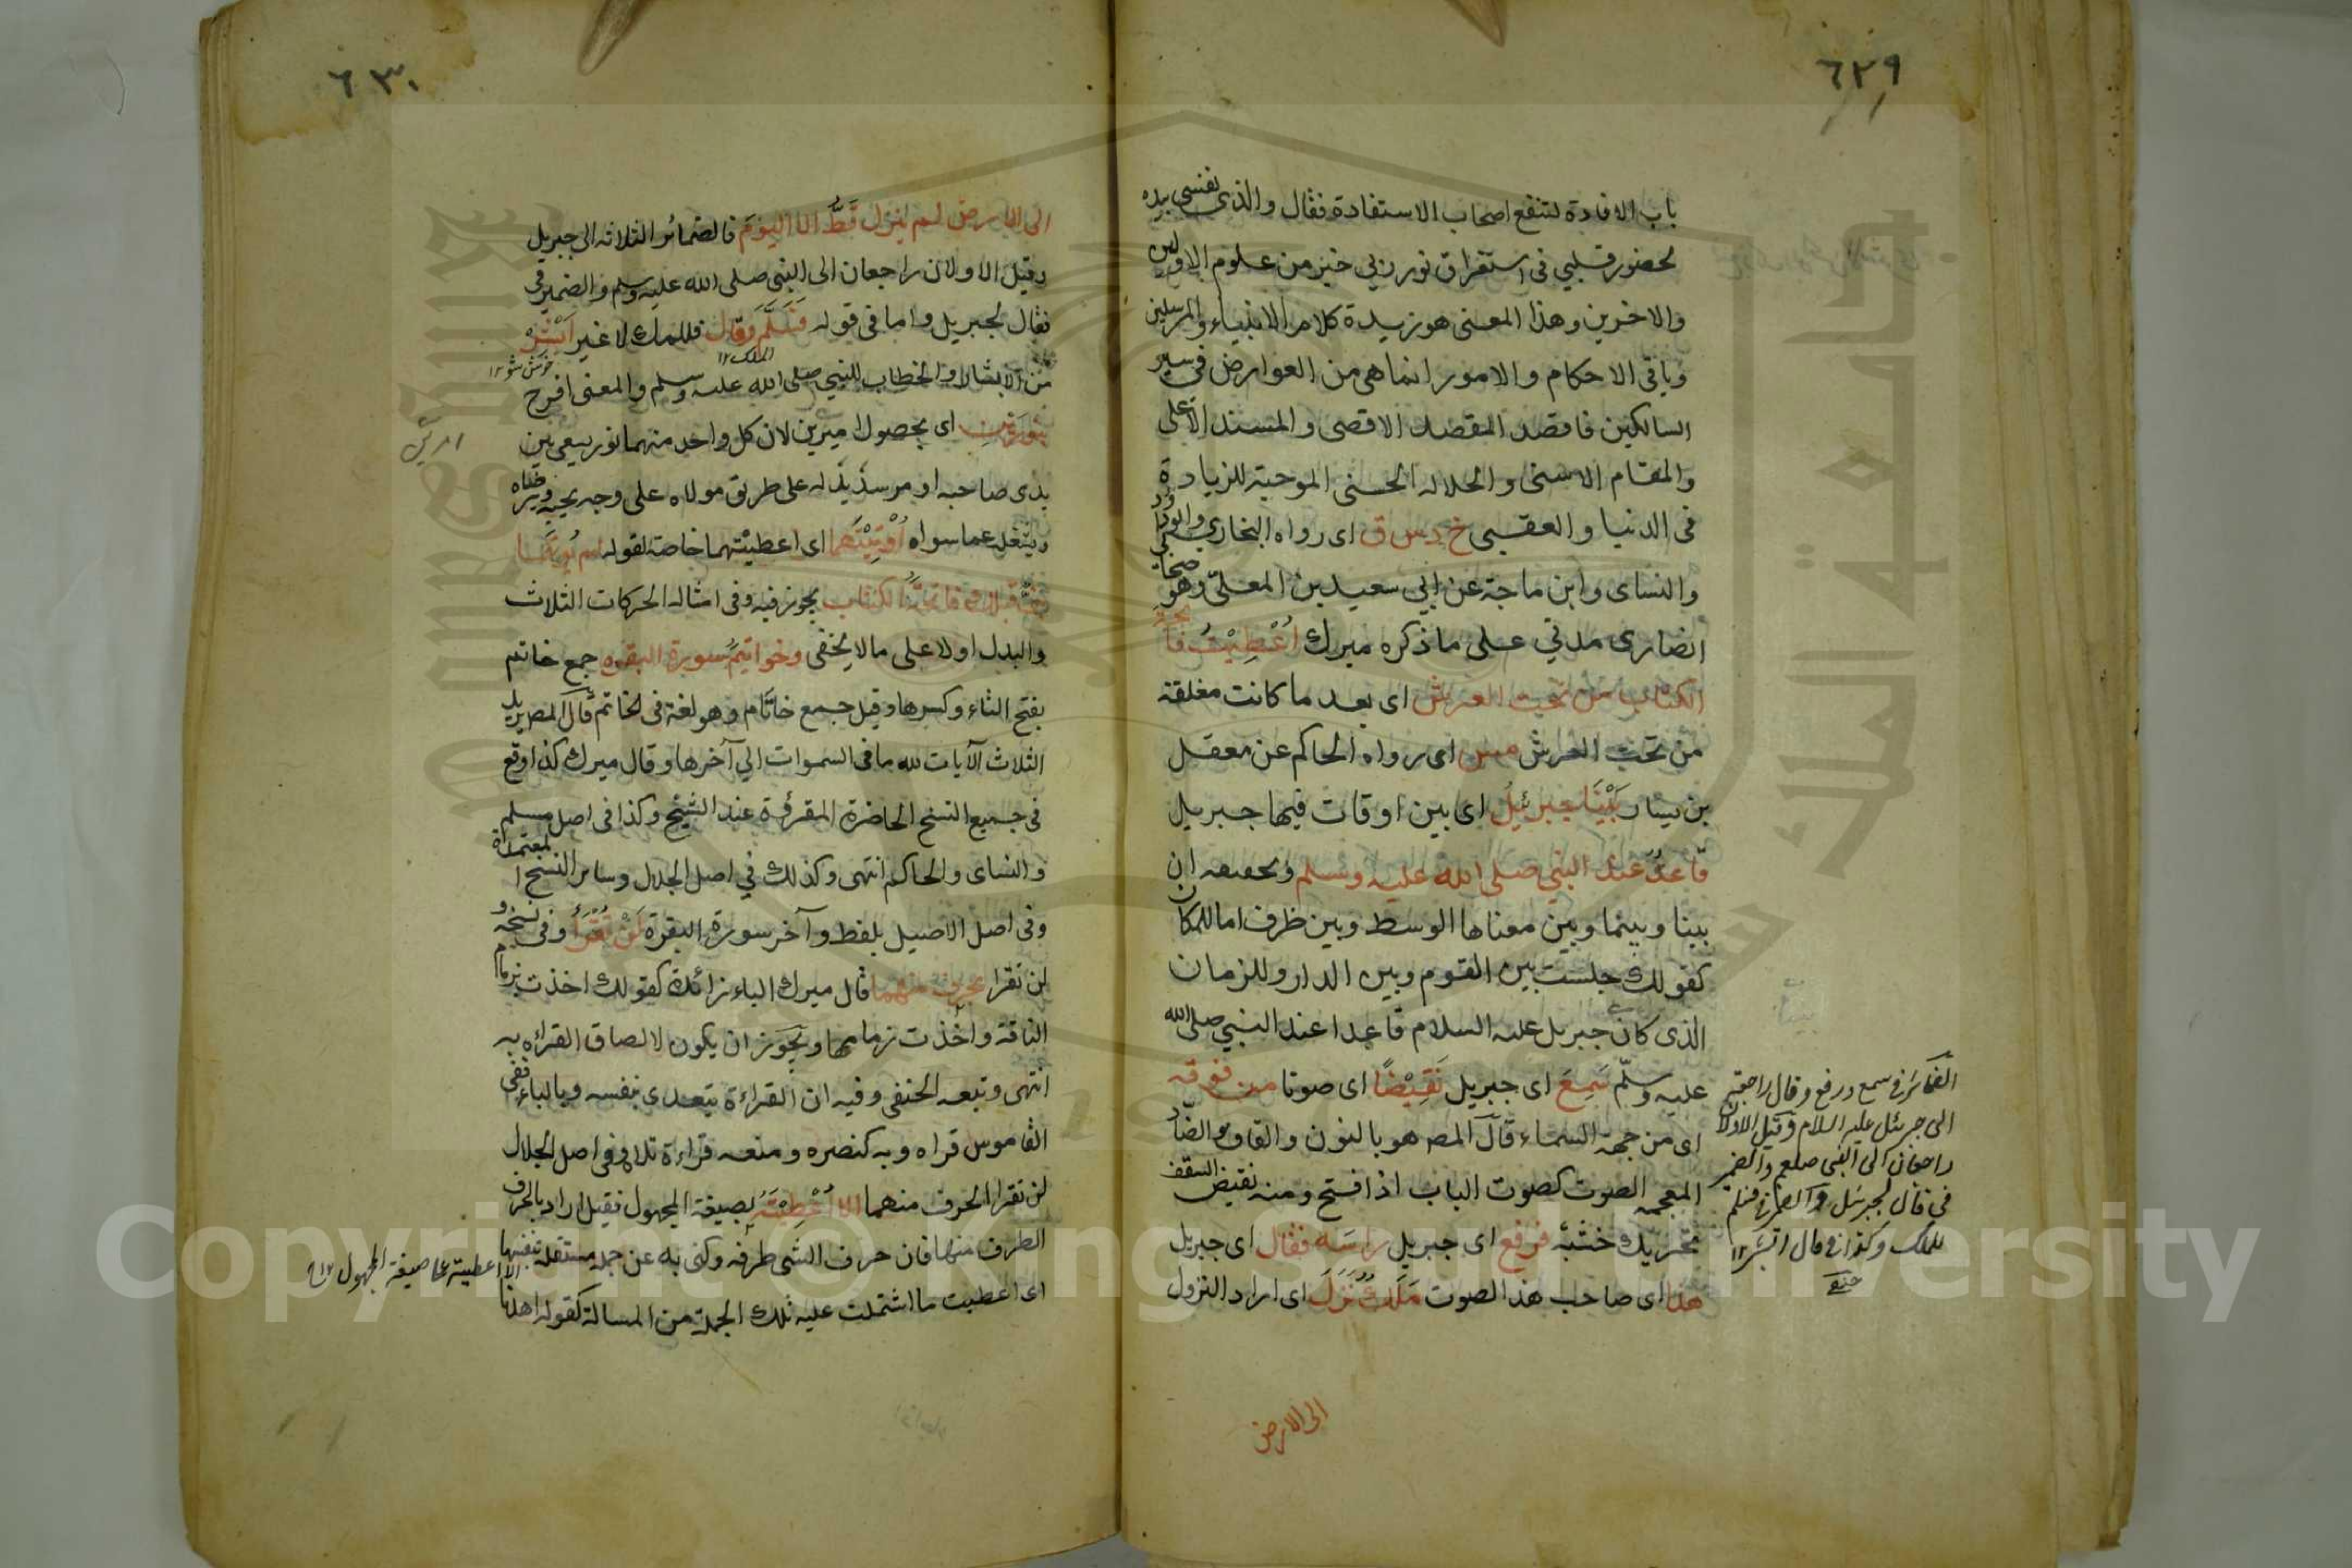 ٦٢٩
باب الافادة لتنفع اصحاب الاستفادة فقال والذي نفسي بيده
لحضور قلبي في استغراق نور ربي خير من علوم الاولين
والاخرين وهذا المعنى هو زبدة كلام الانبياء والمرسلين
وباقي الاحكام والامور انما هي من العوارض في سير
السالكين فاقصد المقصد الاقصى والمسند الاعلى
والمقام الاسنى والحلالة الحسنى الموجبة للزيادة
في الدنيا والعقبى خ د س ق اى رواه البخاري وابو داود
والنساى وابن ماجة عن ابي سعيد بن المعلى وهو صحابي
انصارى مدني على ما ذكره ميرك اُعْطِيْتُ فاتحة
الكتاب من تحت العرش اى بعد ما كانت مغلقة
من تحت العرش مس اى رواه الحاكم عن معقل
بن يسار بَيْنَا جبرئيل اى بين اوقات فيها جبريل
قاعدٌ عند النبي صلى الله عليه وسلم وتحقيقه ان
بينا وبينما وبين معناها الوسط وبين ظرف اما للمكان
كقولك جلست بين القوم وبين الدار وللزمان
الذى كان جبريل عليه السلام قاعدا عند النبي صلى الله
عليه وسلم سَمِعَ اى جبريل نَقِيْضًا اى صوتا من فوقه
اى من جهة السماء قال المص هو بالنون والقاف والضاد
المعجمه الصوت كصوت الباب اذا فتح ومنه نقيض السقف
تحريك خشبه فرفع اى جبريل راسَه فقال اى جبريل
هذا اى صاحب هذا الصوت مَلَكٌ نَزَلَ اى اراد النزول
الى الارض
الضمائر في سمع ورفع وقال راجعة
الى جبرئل عليه السلام وقيل الاولان
راجعان الى النبي صلعم والضمير
في قال لجبرئل والضمير في فسلم
للملك وكذا في قال ابشر ١٢
حنفى
٦٣٠
الى الارض لم ينزل قَطُّ الا اليومَ فالضمائر الثلاثه الى جبريل
وقيل الاولان راجعان الى النبي صلى الله عليه وسلم والضمير في
فقال لجبريل واما في قوله فَسَلَّمَ وقال فللملك لا غير اَبْشِرْ
الملك ١٢
خوش شو ١٢
من الابشار والخطاب للنبي صلى الله عليه وسلم والمعنى افرح
بنورَيْنِ اى بحصول امرين لان كل واحد منهما نور يسعى بين
امرين
يدى صاحبه او مرسد يذله على طريق مولاه على وجه يحبه ويرضاه
ويشغله عما سواه اُوْتِيْتَهُما اى اعطيتهما خاصة لقوله لم يُؤتهما
نبيٌّ قبلك فاتحةُ الكتاب يجوز فيه وفي امثاله الحركات الثلاث
والبدل اولا على ما لا يخفى وخواتيمُ سورة البقره جمع خاتم
بفتح التاء وكسرها وقيل جمع خاتام وهو لغة في الخاتم قال المص يريد
الثلاث الآيات لله ما في السموات الي آخرها وقال ميرك كذا وقع
في جميع النسخ الحاضرة المقروة عند الشيخ وكذا في اصل مسلم
والنساى والحاكم انتهى وكذلك في اصل الجلال وسائر النسخ المعتمدة
وفي اصل الاصيل بلفظ وآخر سورة البقرة لَنْ تَقْرَأ وفي نسخه و
لن تقرا بحرف منهما قال ميرك الباء زائدة كقولك اخذت بزمام
الناقة واخذت زمامها ويجوز ان يكون لالصاق القراه به
انتهى وتبعه الحنفي وفيه ان القراءة يتعدى بنفسه وبالباء ففي
القاموس قراه وبه كنصره ومنعه قراءة تلاه وفي اصل الجلال
لن تقرا الحرف منهما الا اُعْطِيْتَهُ بصيغة المجهول فقيل اراد بالحرف
الطرف منها فان حرف الشي طرفه وكنى به عن جملة مستقلة بنفسها
الا اعطيته على صيغة المجهول ١٢
اى اعطيت ما اشتملت عليه تلك الجملة من المسالة كقوله اهدنا
Copyright © King Saud University